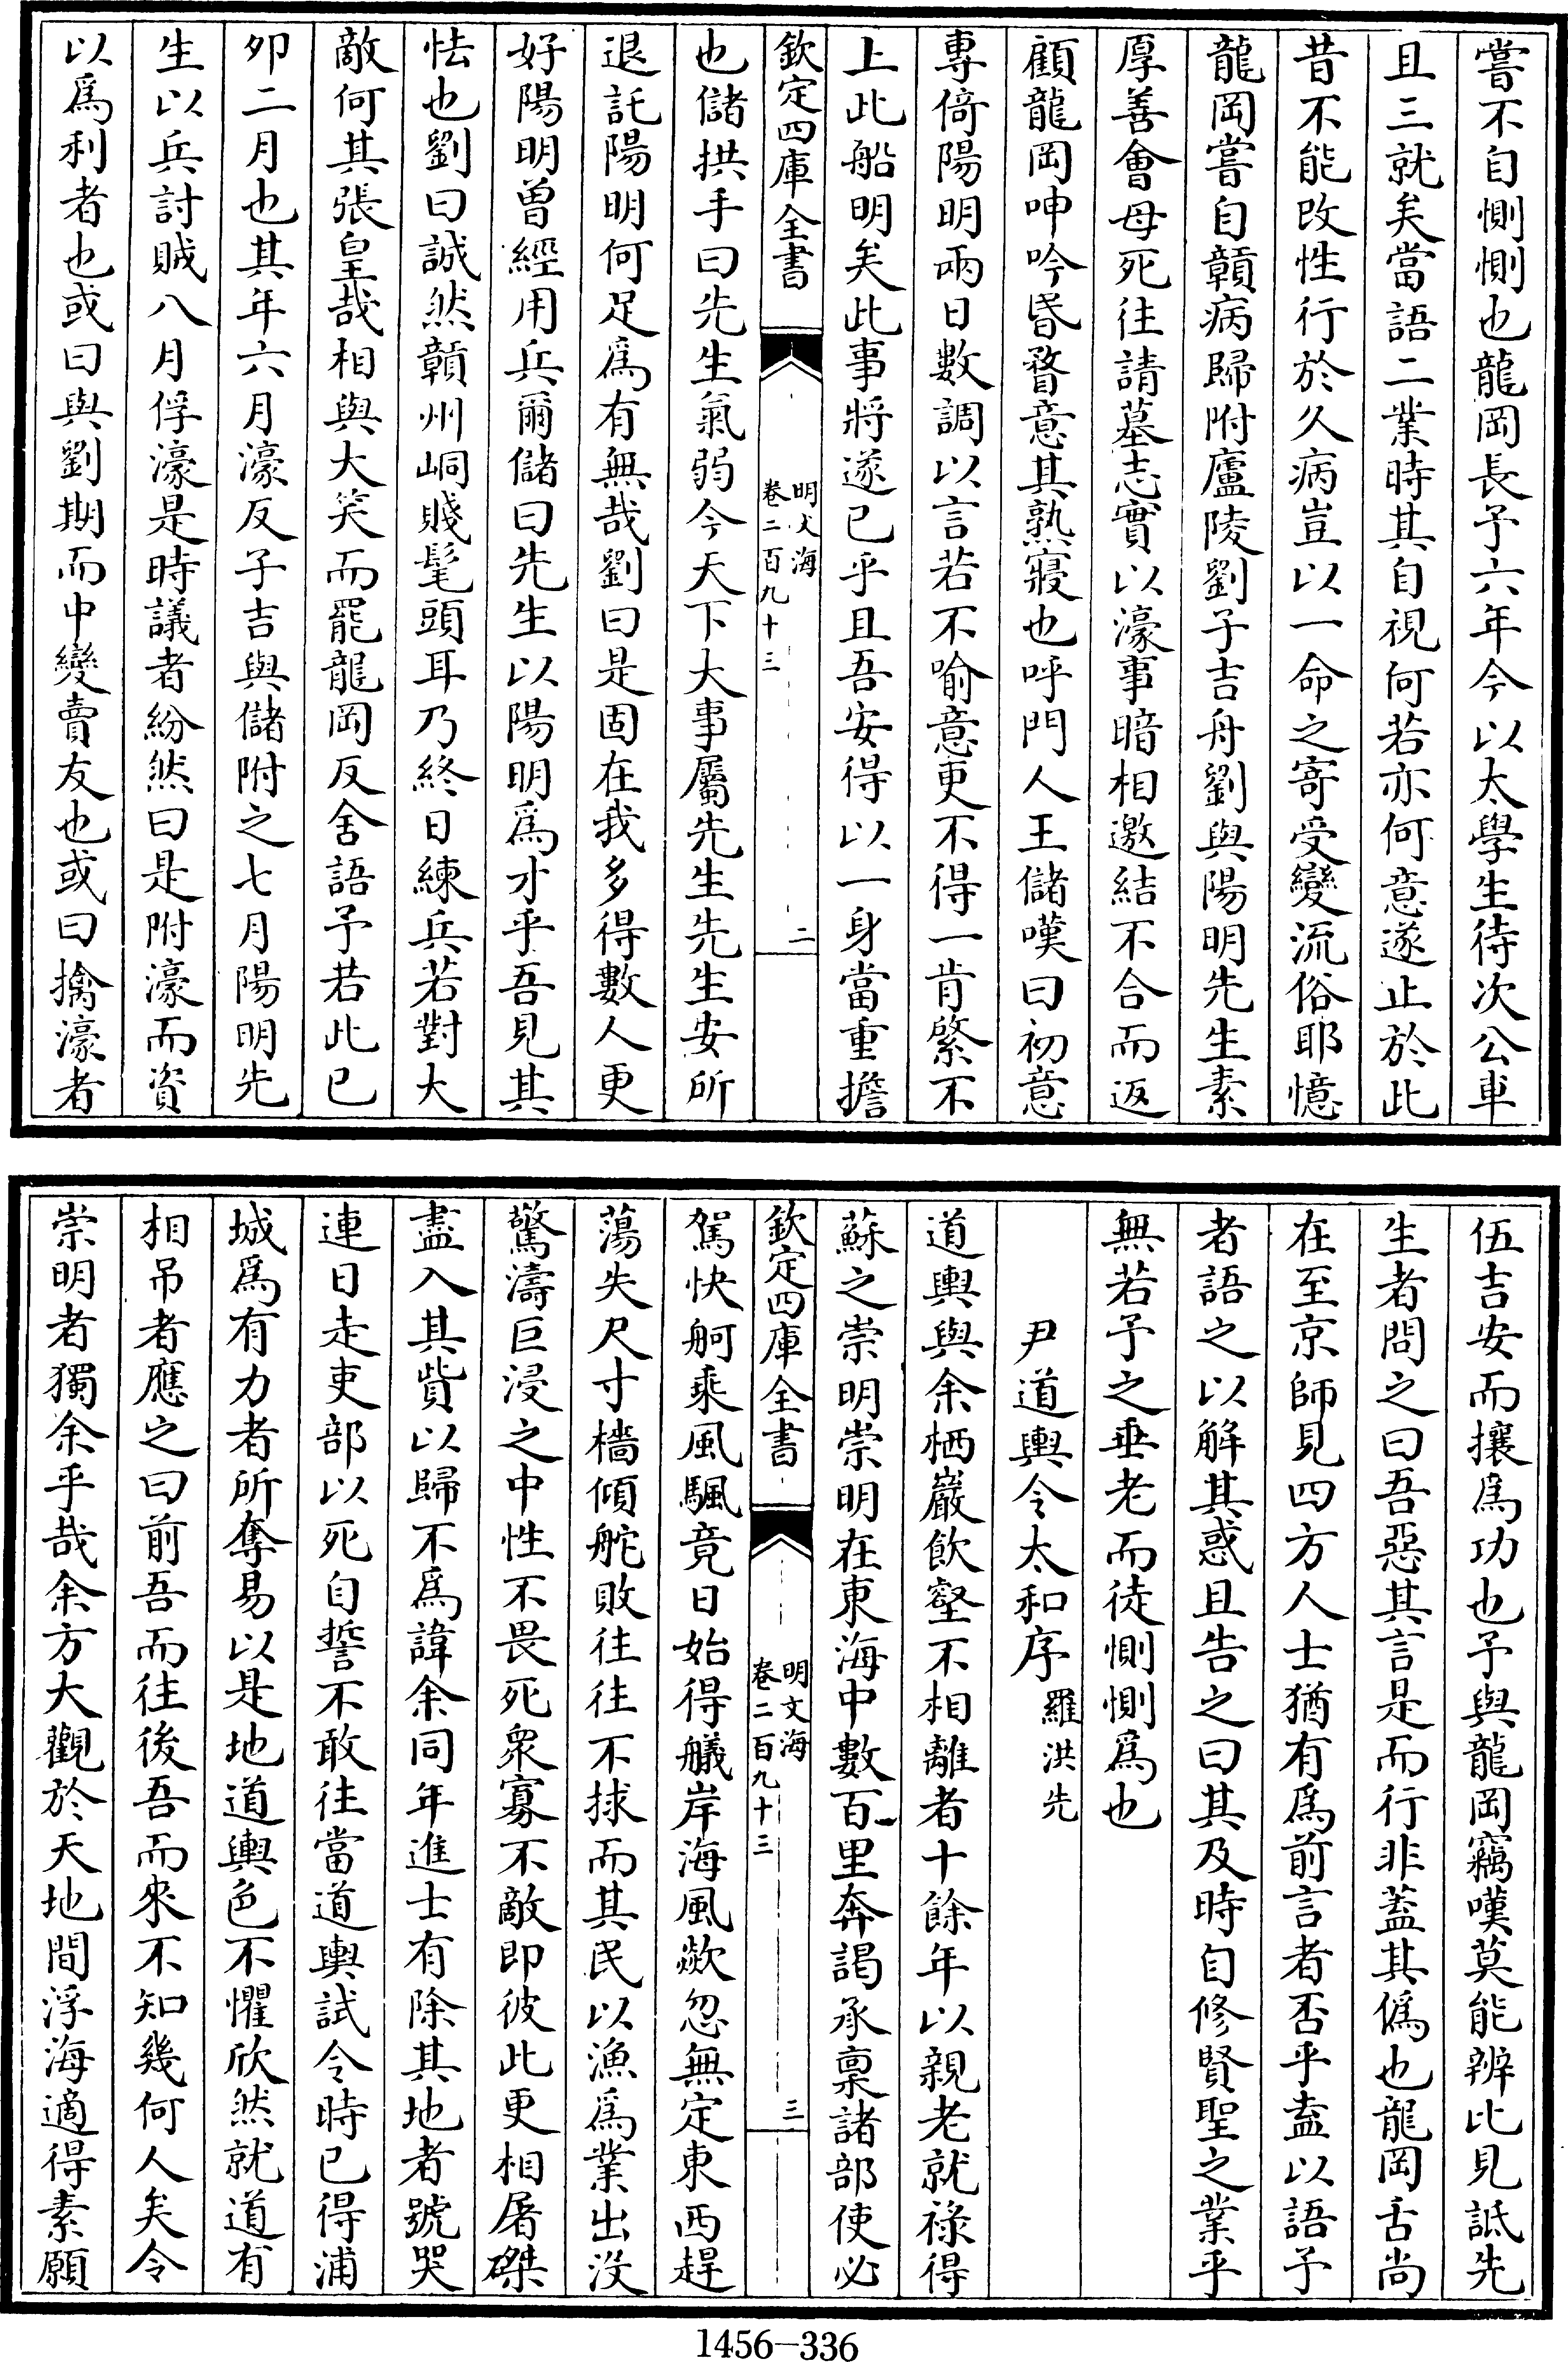 嘗不自惻惻也龍岡長予六年今以太學生待次公車
且三就矣當語二業時其自視何若亦何意遂止於此
昔不能改性行於久病豈以一命之寄受變流俗耶憶
龍岡嘗自贛病歸附廬陵劉子吉舟劉與陽明先生素
厚善會母死往請墓志實以濠事暗相邀結不合而返
顧龍岡呻吟昬瞀意其熟寢也呼門人王儲嘆曰初意
專倚陽明兩日數調以言若不喻意更不得一肯綮不
上此船明矣此事將遂已乎且吾安得以一身當重擔
欽定四庫全書
明文海
卷二百九十三
二
也儲拱手曰先生氣弱今天下大事屬先生先生安所
退託陽明何足爲有無哉劉曰是固在我多得數人更
好陽明曾經用兵爾儲曰先生以陽明爲才乎吾見其
怯也劉曰誠然贛州峒賤髦頭耳乃終日練兵若對大
敵何其張皇哉相與大笑而罷龍岡反舍語予若此已
夘二月也其年六月濠反子吉與儲附之七月陽明先
生以兵討賊八月俘濠是時議者紛然曰是附濠而資
以爲利者也或曰與劉期而中變賣友也或曰擒濠者
伍吉安而攘爲功也予與龍岡竊嘆莫能辨比見詆先
生者問之曰吾惡其言是而行非葢其僞也龍岡舌尚
在至京師見四方人士猶有爲前言者否乎盍以語予
者語之以解其惑且告之曰其及時自修賢聖之業乎
無若予之垂老而徒惻惻爲也
尹道輿令太和序 羅洪先
道輿與余栖巖飲壑不相離者十餘年以親老就祿得
蘇之崇明崇明在東海中數百里奔謁承稟諸部使必
欽定四庫全書
明文海
卷二百九十三
三
駕快舸乘風颿竟日始得艤岸海風歘忽無定東西趕
蕩失尺寸檣傾舵敗往往不捄而其民以漁爲業出没
驚濤巨浸之中性不畏死衆寡不敵即彼此更相屠磔
盡入其貲以歸不爲諱余同年進士有除其地者號哭
連日走吏部以死自誓不敢往當道輿試令時已得浦
城爲有力者所奪易以是地道輿色不懼欣然就道有
相吊者應之曰前吾而往後吾而來不知幾何人矣令
崇明者獨余乎哉余方大觀於天地間浮海適得素願
1456—336